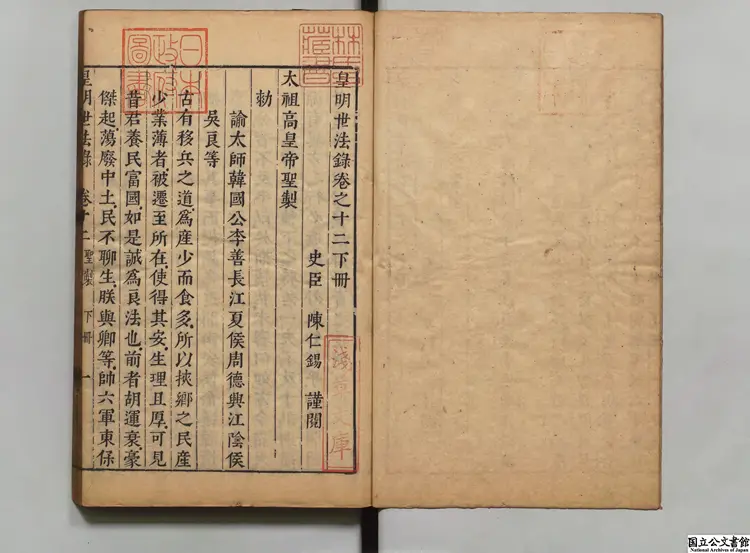 林氏藏書
皇明世法錄卷之十二下冊
史臣 陳仁錫 謹閱
淺草文庫
太祖高皇帝聖製
勑
諭太師韓國公李善長江夏侯周德興江陰侯
吳良等
日本政府圖書
古有移兵之道爲產少而食多、所以挾鄉之民產
少業薄者被遷至所在、使得其安生理且厚、可見
昔君養民富國、如是誠爲良法也、前者胡運衰、豪
傑起、蕩廢中土、民不聊生、朕與卿等、帥六軍東保
皇明世法錄 卷十二 聖製 下冊 一
国立公文書館
National Archives of Japan